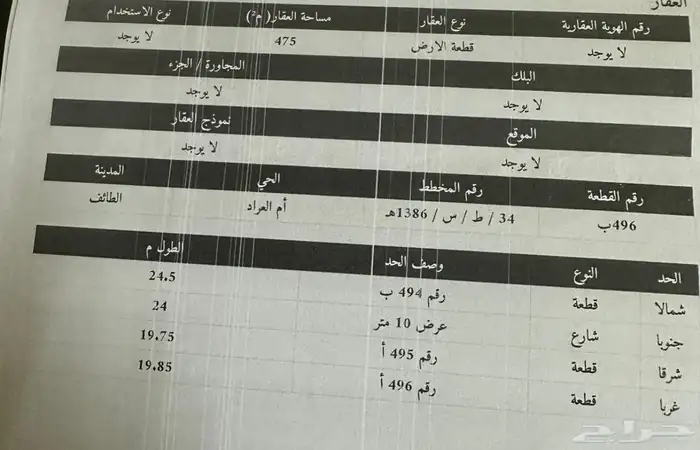 العقار
رقم الهوية العقارية نوع العقار مساحة العقار( م²) نوع الاستخدام
لا يوجد قطعة الارض 475 لا يوجد
البلك المجاورة / الجزء
لا يوجد لا يوجد
الموقع نموذج العقار
لا يوجد لا يوجد
رقم القطعة رقم المخطط الحي المدينة
496ب 34 / ط / س / 1386هـ أم العراد الطائف
الحد النوع وصف الحد الطول م
شمالا قطعة رقم 494 ب 24.5
جنوبا شارع عرض 10 متر 24
شرقا قطعة رقم 495 أ 19.75
غربا قطعة رقم 496 أ 19.85
حراج